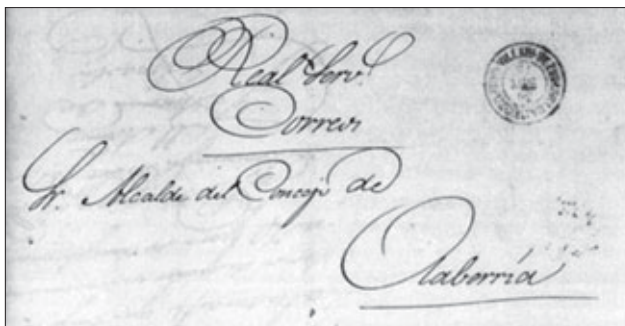 Real Serv.
Correos
Sr. Alcalde del Concejo de
Olaberría